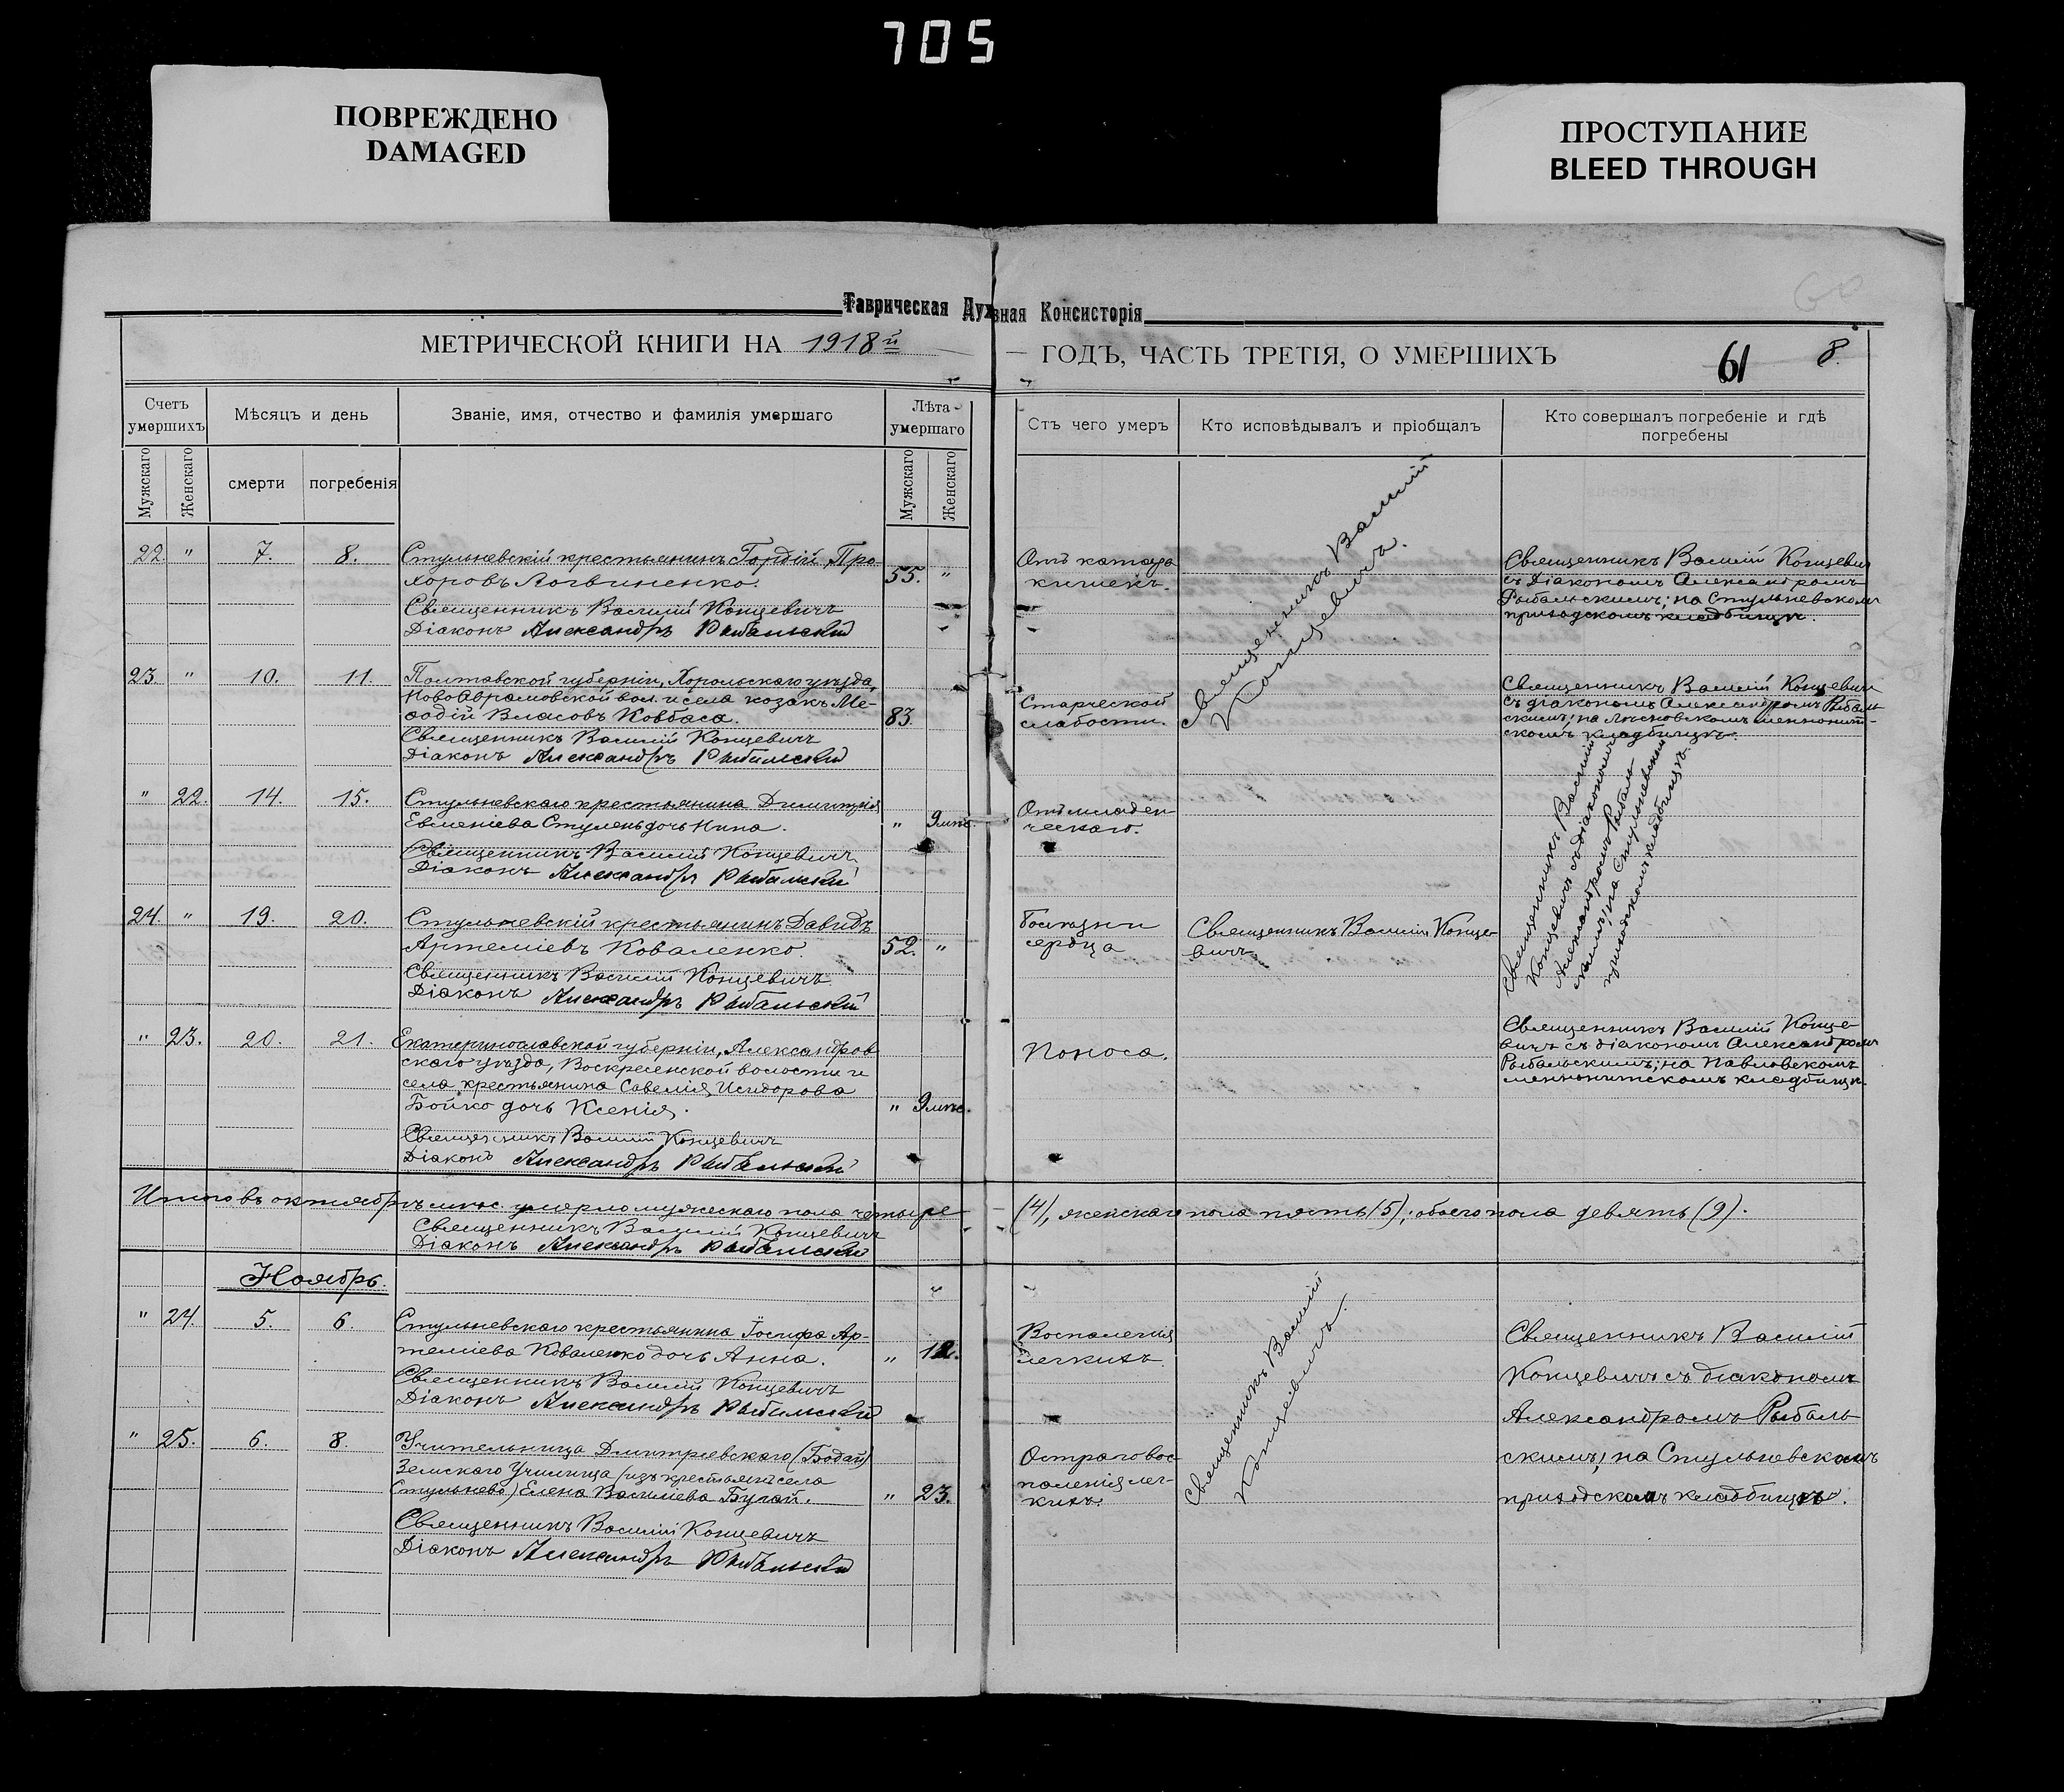 705
ПОВРЕЖДЕНО
DAMAGED
ПРОСТУПАНИЕ
BLEED THROUGH
Таврическая Духовная Консисторія
МЕТРИЧЕСКОЙ КНИГИ НА 1918й
ГОДЪ, ЧАСТЬ ТРЕТІЯ, О УМЕРШИХЪ
61
8.
60
Счетъ умершихъ
Мѣсяцъ и день
Званіе, имя, отчество и фамилія умершаго
Лѣта умершаго
Отъ чего умеръ
Кто исповѣдывалъ и пріобщалъ
Кто совершалъ погребеніе и гдѣ погребены
Мужскаго
Женскаго
смерти
погребенія
Мужскаго
Женскаго
22. " 7. 8. Стульневскій крестьянинъ Гордій Про-
хоровъ Логвиненко. 55. "
Священникъ Василій Концевичъ
Діаконъ Александръ Рыбальскій
Отъ катара
кишекъ.
Священникъ Василій
Концевичъ.
Священникъ Василій Концевичъ
съ Діакономъ Александромъ
Рыбальскимъ; на Стульневскомъ
приходскомъ кладбищѣ.
23. " 10. 11. Полтавской губерніи, Хорольскаго уѣзда,
НовоАврамовской вол. и села козакъ Ме-
ѳодій Власовъ Ковбаса. 83.
Священникъ Василій Концевичъ
Діаконъ Александръ Рыбальскій
Старческой
слабости.
Священникъ Василій Концевичъ
съ діакономъ Александромъ Рыбаль-
скимъ; на меннонит-
скомъ кладбищѣ.
" 22. 14. 15. Стульневскаго крестьянина Димитрія
Евменіева Стулень дочь Нина. " 9 мѣс.
Священникъ Василій Концевичъ
Діаконъ Александръ Рыбальскій
Отъ младен-
ческаго.
Священникъ Василій
Концевичъ съ діакономъ
Александромъ Рыбаль-
скимъ; на Стульневскомъ
приходскомъ кладбищѣ.
24. " 19. 20. Стульневскій крестьянинъ Давидъ
Артеміевъ Коваленко. 52. "
Священникъ Василій Концевичъ
Діаконъ Александръ Рыбальскій
Болѣзни
сердца
Священникъ Василій Конце-
вичъ.
" 23. 20. 21. Екатеринославской губерніи, Александров-
скаго уѣзда, Воскресенской волости и
села крестьянина Савелія Исидорова
Бойко дочь Ксенія. " 9 мѣс.
Священникъ Василій Концевичъ
Діаконъ Александръ Рыбальскій
Поноса.
Священникъ Василій Конце-
вичъ съ діакономъ Александромъ
Рыбальскимъ; на Павловскомъ
меннонитскомъ кладбищѣ.
Итого въ октябрѣ мѣс. умерло мужескаго пола четыре (4), женскаго пола пять (5); обоего пола девять (9).
Священникъ Василій Концевичъ
Діаконъ Александръ Рыбальскій
Ноябрь.
" 24. 5. 6. Стульневскаго крестьянина Іосифа Ар-
теміева Коваленко дочь Анна. " 12.
Священникъ Василій Концевичъ
Діаконъ Александръ Рыбальскій
Воспаленія
легкихъ.
Священникъ Василій
Концевичъ.
Священникъ Василій
Концевичъ съ діакономъ
Александромъ Рыбаль-
скимъ; на Стульневскомъ
приходскомъ кладбищѣ.
" 25. 6. 8. Учительница Дмитріевскаго (Бодай)
Земскаго Училища (изъ крестьянъ села
Стульнево) Елена Васильева Бугай. " 23.
Священникъ Василій Концевичъ
Діаконъ Александръ Рыбальскій
Остраго вос-
паленія лег-
кихъ.